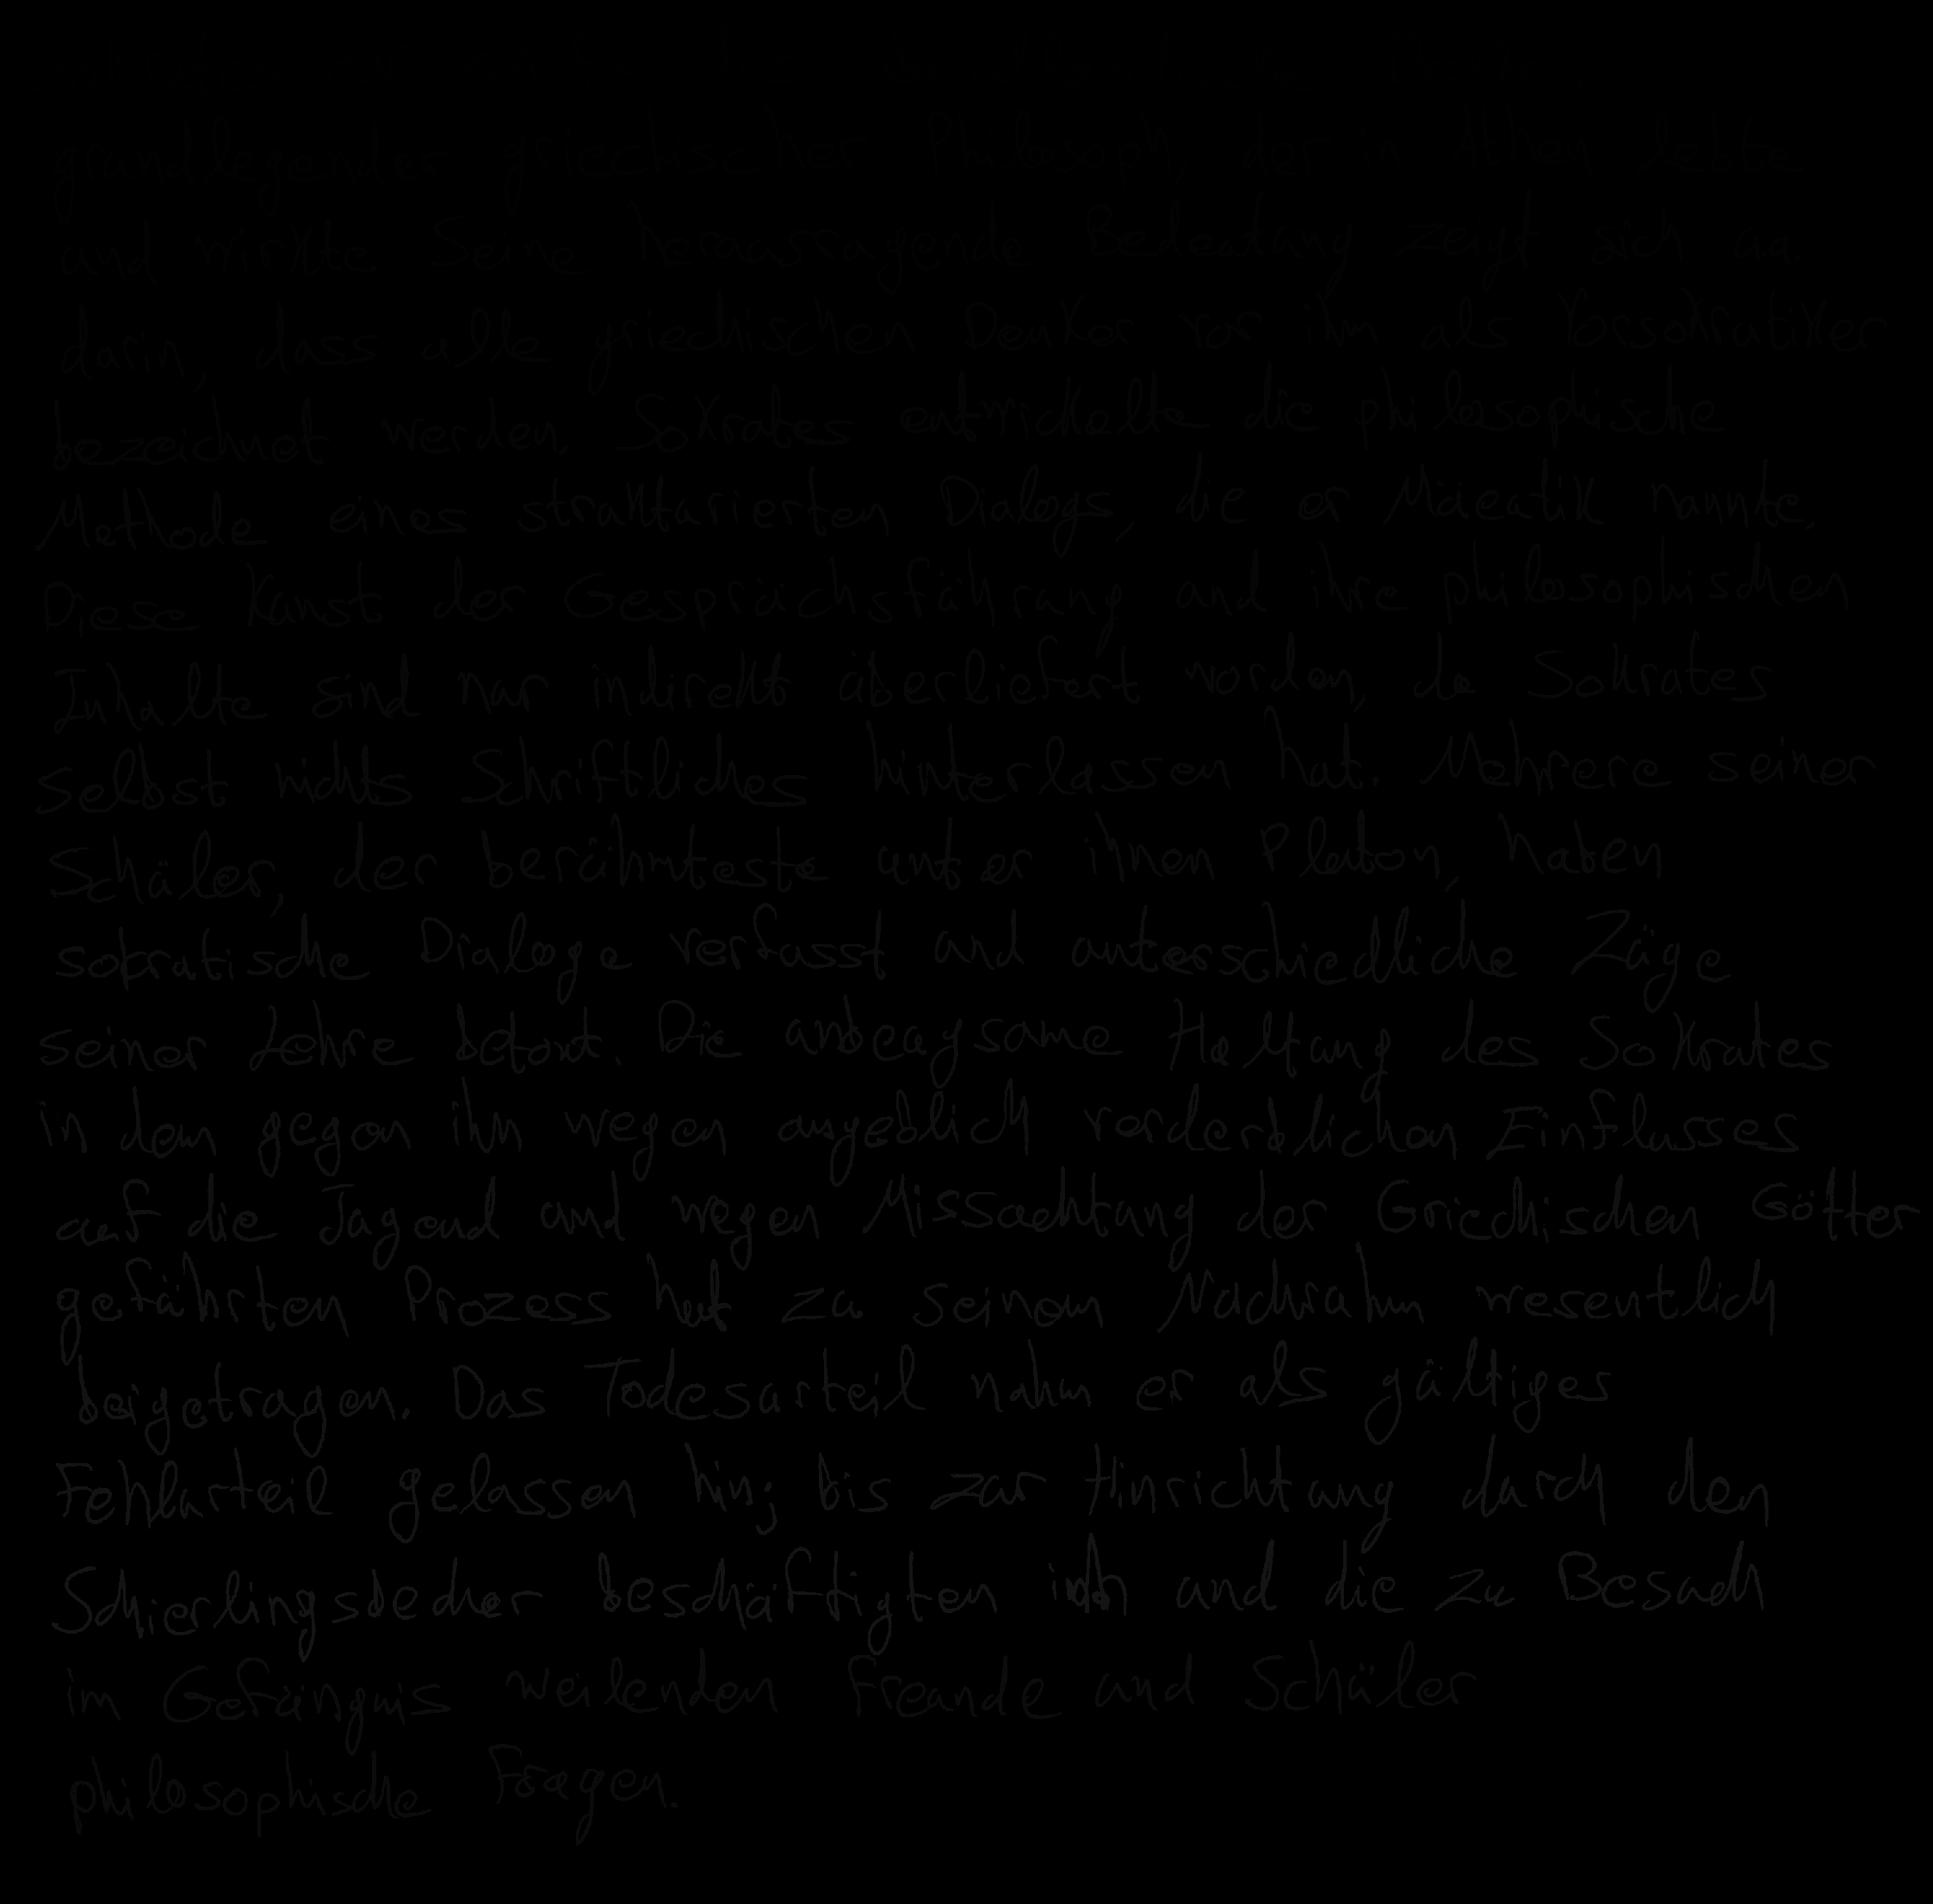 grundlegender griechischer Philosoph, der in Athen lebte
und wirkte. Seine herausragende Bedeutung zeigt sich u.a.
darin, dass alle griechischen Denker vor ihm als Vorsokratiker
bezeichnet werden. Sokrates entwickelte die philosophische
Methode eines strukturierten Dialogs, die er Mäeutik nannte.
Diese Kunst der Gesprächsführung und ihre philosophischen
Inhalte sind nur indirekt überliefert worden, da Sokrates
selbst nichts Schriftliches hinterlassen hat. Mehrere seiner
Schüler, der berühmteste unter ihnen Platon, haben
sokratische Dialoge verfasst und unterschiedliche Züge
seiner Lehre betont. Die unbeugsame Haltung des Sokrates
in dem gegen ihn wegen angeblich verderblichen Einflusses
auf die Jugend und wegen Missachtung der Griechischen Götter
geführten Prozess hat zu seinem Nachruhm wesentlich
beigetragen. Das Todesurteil nahm er als gültiges
Fehlurteil gelassen hin; bis zur Hinrichtung durch den
Schierlingsbecher beschäftigten ihn und die zu Besuch
im Gefängnis weilenden Freunde und Schüler
philosophische Fragen.